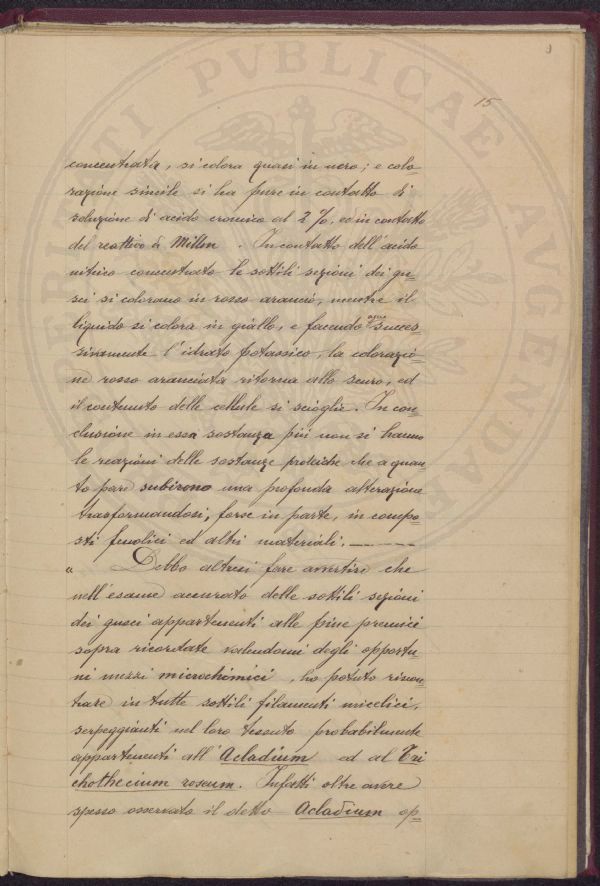 15
concentrata, si colora quasi in nero; e colo=
razione simile si ha pure in contatto di
soluzione di acido cromico al 2 %, ed in contatto
del reattivo di Millon . In contatto dell'acido
nitrico concentrato le sottili sezioni dei gu=
sci si colorano in rosso arancio, mentre il
liquido si colora in giallo, e facendo agire succes=
sivamente l'idrato potassico, la colorazio=
ne rosso aranciata ritorna allo scuro, ed
il contenuto delle cellule si scioglie. In con=
clusione in essa sostanza più non si hanno
le reazioni delle sostanze proteiche che a quan=
to pare subirono una profonda alterazione
trasformandosi, forse in parte, in compo=
sti fenolici ed altri materiali. — — —
" Debbo altresì fare avvertire che
nell'esame accurato delle sottili sezioni
dei gusci appartenenti alle pine premici
sopra ricordate valendomi degli opportu=
ni mezzi microchimici, ho potuto riscon=
trare in tutte sottili filamenti micelici,
serpeggianti nel loro tessuto probabilmente
appartenenti all'Acladium ed al Tri
chothecium roseum. Infatti oltre avere
spesso osservato il detto Acladium op=
PERICULA PUBLICAE